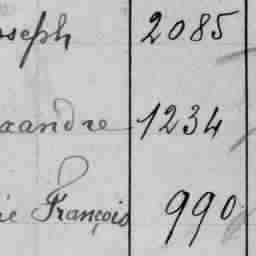 oseph 2085
xandre 1234
ie François 990